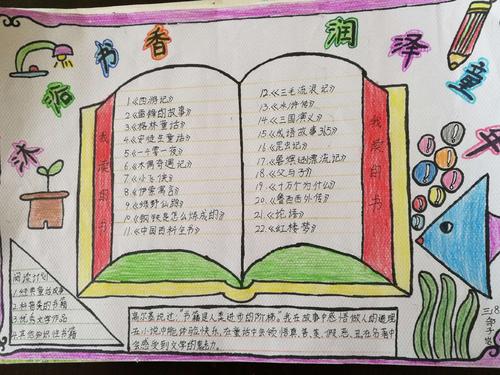 沐浴书香 润泽童心
我读的书
1.《西游记》
2.《雷锋的故事》
3.《格林童话》
4.《安徒生童话》
5.《一千零一夜》
6.《木偶奇遇记》
7.《小飞侠》
8.《伊索寓言》
9.《绿野仙踪》
10.《钢铁是怎么炼成的》
11.《中国百科全书》
12.《三毛流浪记》
13.《水浒传》
14.《三国演义》
15.《成语故事365》
16.《昆虫记》
17.《鲁滨逊漂流记》
18.《父与子》
19.《十万个为什么》
20.《鲁西西外传》
21.《论语》
22.《红楼梦》
我读的书
阅读计划
1.经典童话故事
2.科普类的书籍
3.优秀文学作品
4.其他知识性书籍
高尔基说过：书籍是人类进步的阶梯。我在故事中感悟做人的道理
在小说中能体验快乐，在童话中去领悟真、善、美、假、恶、丑在名著中
去感受到文学的魅力。